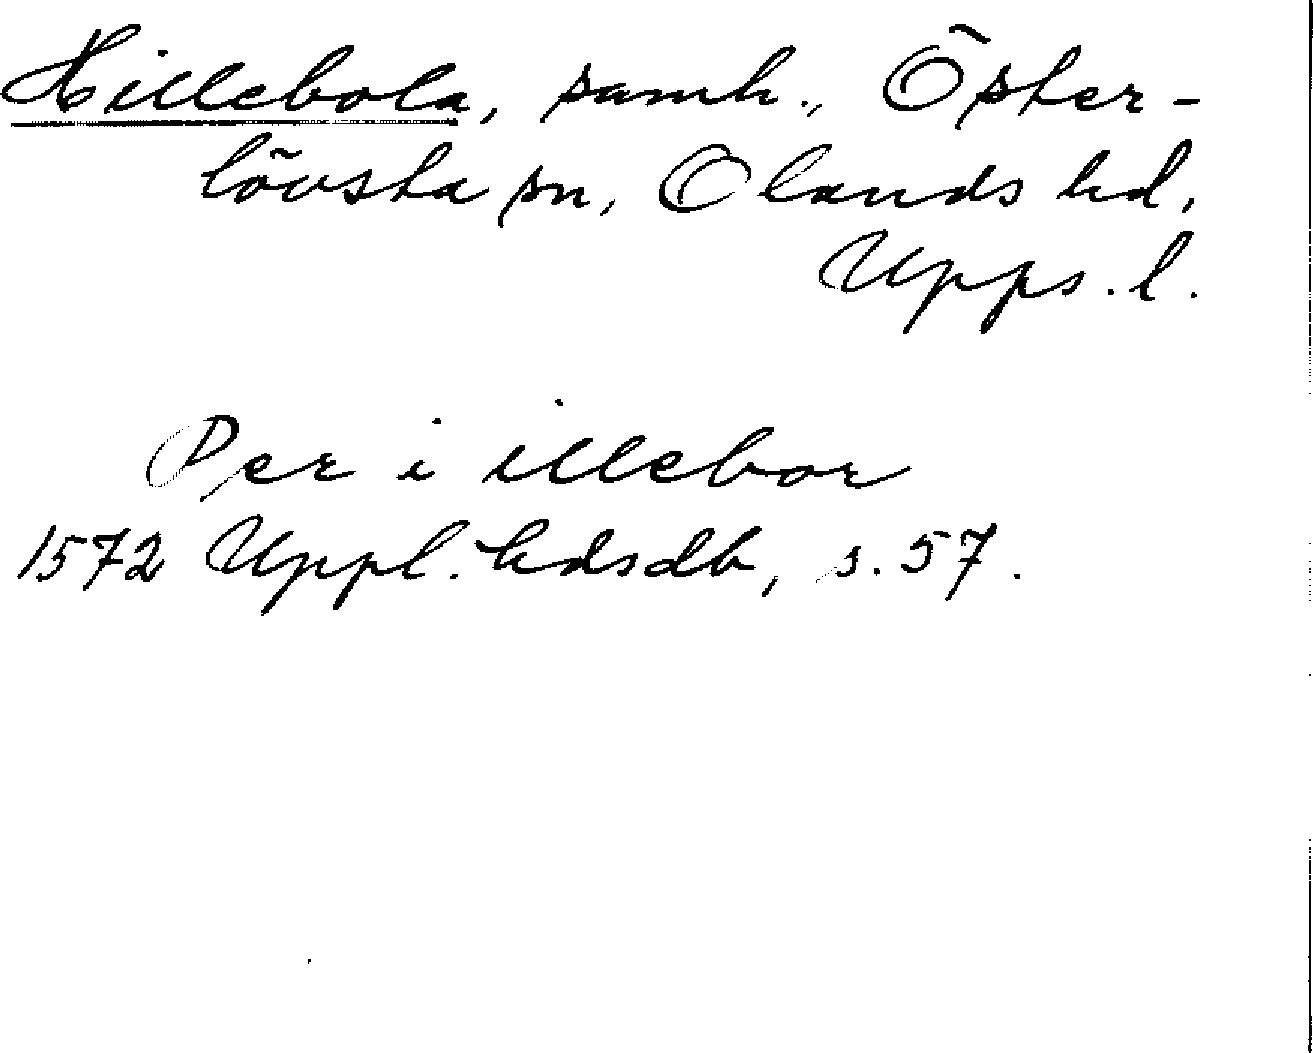 Hillebola, samh., Öster-
lövsta sn, Olands hd,
Upps. l.
Per i illebor
1572 Uppl. hdsdb, s. 57.